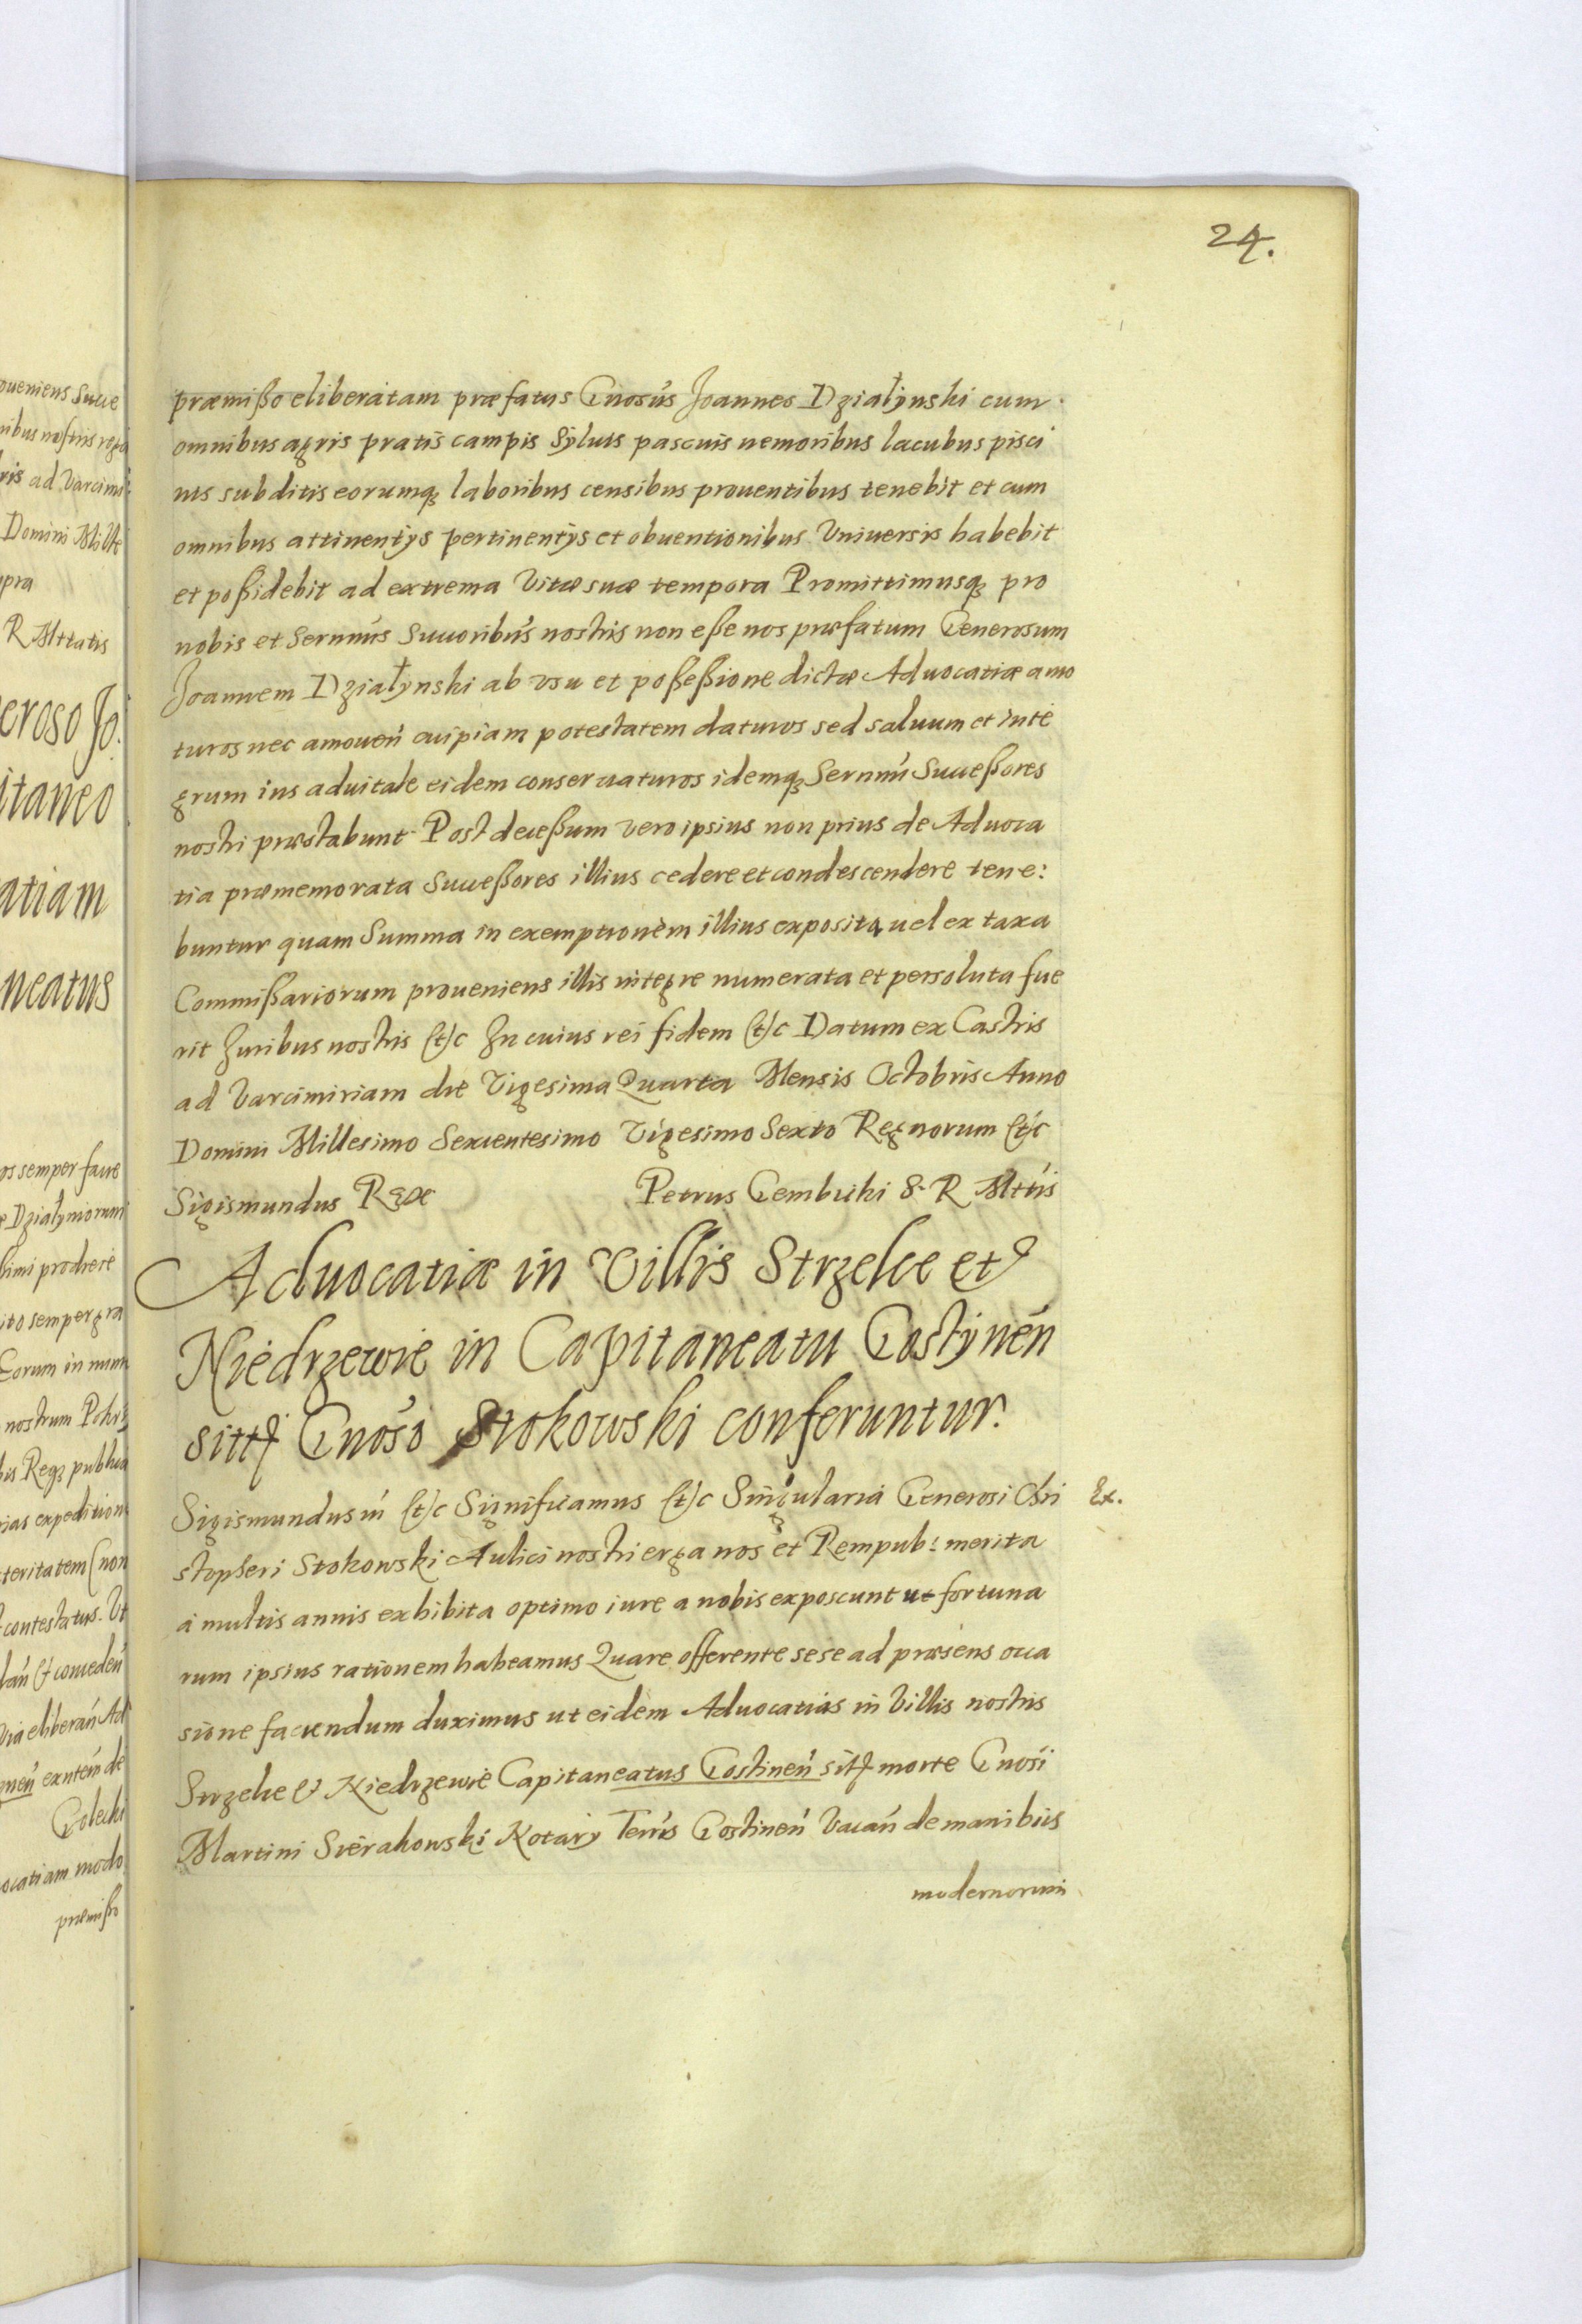 24.
præmisso eliberatam præfatus Gnosus Joannes Działynski cum
omnibus agris pratis campis syluis pascuis nemoribus lacubus pisci
nis subditis eorumq3 laboribus censibus prouentibus tenebit et cum
omnibus attinentijs pertinentijs et obuentionibus Vniuersis habebit
et possidebit ad extrema Vitæ suæ tempora Promittimusq3 pro
nobis et Sernmis Succoribus nostris non esse nos præfatum Generosum
Joannem Działynski ab vsu et possessione dictæ Aduocatiæ amo
turos nec amouen cuipiam potestatem daturos sed saluum et inte
grum ius aduitale eidem conseruaturos idemq3 Sernmi Successores
nostri præstabunt Post decessum vero ipsius non prius de Aduoca
tia præmemorata Successores illius cedere et condescendere tene:
buntur quam Summa in exemptionem illius exposita uel ex taxa
Commissariorum proueniens illis integre numerata et persoluta fue
rit Juribus nostris etc In cuius rei fidem etc Datum ex Castris
ad Varcimiriam die Vigesima Quarta Mensis Octobris Anno
Domini Millesimo Sexcentesimo Vigesimo Sexto Regnorum etc
Sigismundus Rex Petrus Gembicki S. R Mttis
Aduocatiæ in Villis Strzelce et
Niedrzewie in Capitaneatu Gostynen
sitæ Gnoso Stokowski conferuntur.
Sigismundus iii etc Significamus etc Singularia Generosi Chri Ex.
stopheri Stokowski Aulici nostri erga nos et Rempub: merita
a multis annis exhibita optimo iure a nobis exposcunt ut fortuna
rum ipsius rationem habeamus Quare offerente sese ad præsens occa
sione faciendum duximus ut eidem Aduocatias in Villis nostris
Strzelce et Niedrzewie Capitaneatus Gostinen sitas morte Gnosi
Martini Sierakowski Notarij Terris Gostinen Vacan de manibus
modernorum